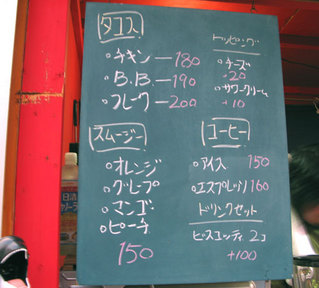 タコス
・チキン ― 180
・B.B. ― 190
・フレーク ― 200
トッピング
・チーズ
+20
・サワークリーム
+10
スムージー
・オレンジ
・グレープ
・マンゴ
・ピーチ
150
コーヒー
・アイス 150
・エスプレッソ 160
ドリンクセット
ビスコッティ 2コ
+100